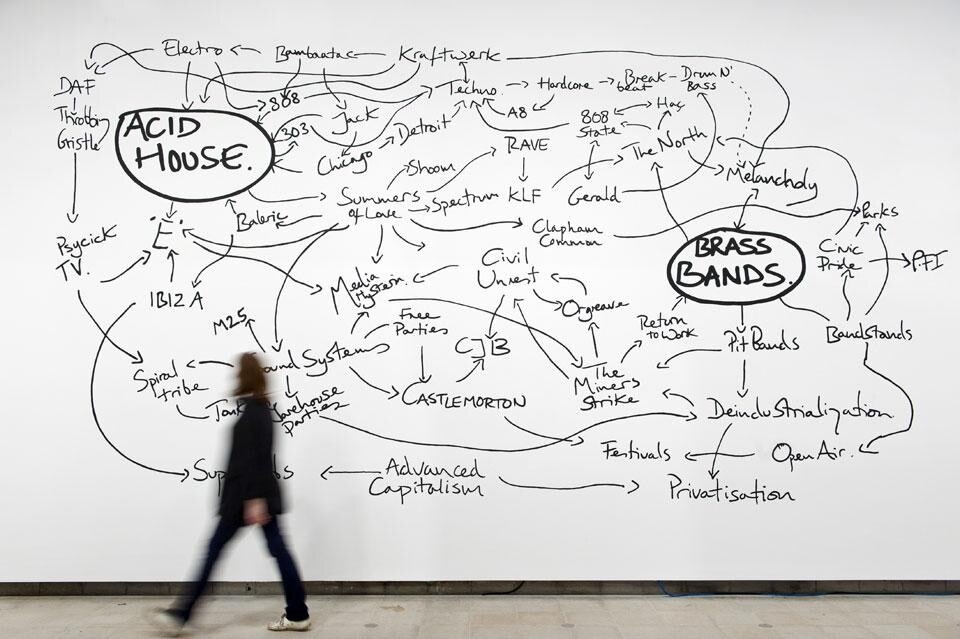 Electro
Bambaataa
Kraftwerk
DAF
Throbbin
Gristle
ACID
HOUSE.
808
303
Jack
Chicago
Detroit
Techno
Hardcore
Break
beat
Drum N'
Bass
A8
808
State
Hac
The North
RAVE
Shoom
Summers
of Love
Spectrum
KLF
Gerald
Melancholy
Parks
Psycick
TV.
'E'
Baleric
IBIZA
Clapham
Common
BRASS
BANDS.
Civic
Pride
PFI
Media
Hysteria.
Civil
Unrest
Orgreave
M25
Free
Parties
CJB
Return
to Work
Pit Bands
Bandstands
Spiral
tribe
ound Systems
The
Miners
Strike
CASTLEMORTON
Warehouse
Parties
Deindustrialization
Festivals
Open Air.
Advanced
Capitalism
Privatisation